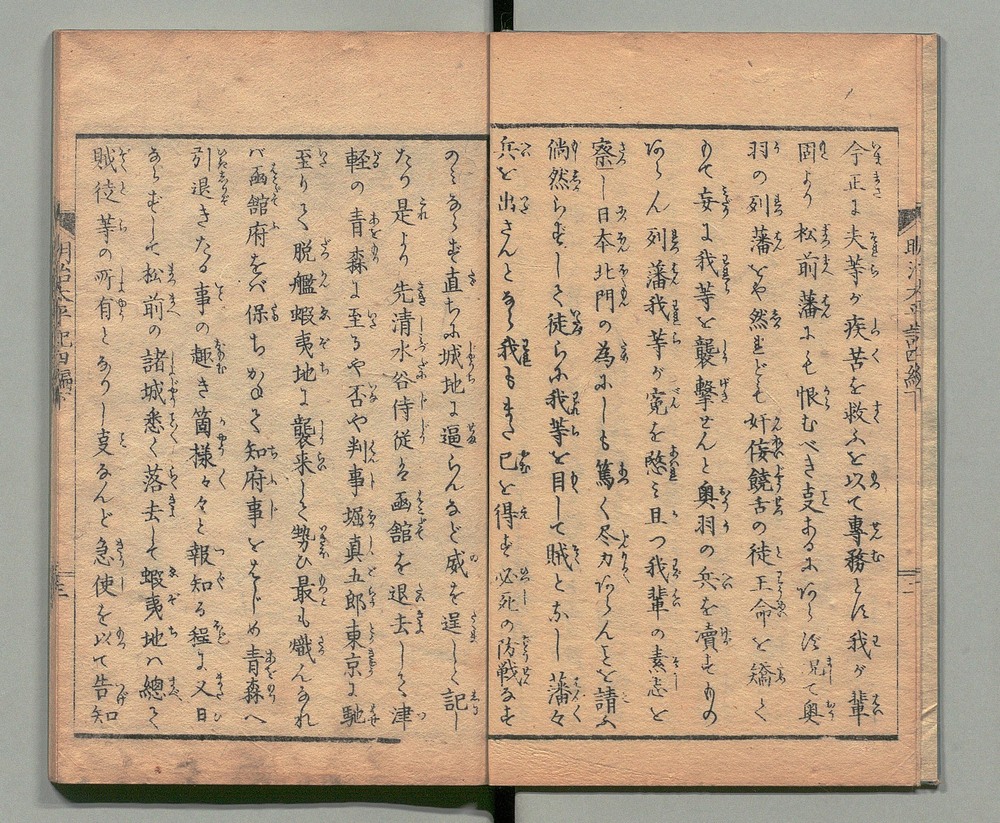 今正に夫等が疾苦を救ふを以て專務とは我が輩
固より松前藩にも恨むべき支あるにあらず況て奥
羽の列藩をや然れども奸佞饒舌の徒王命を矯して
もて妄に我等を襲撃せんと奥羽の兵を賣すもの
あらん列藩我等が寃を愍み且つ我輩の素志を
察し日本北門の為にしも篤く尽力あらんを請ふ
倘然らずして徒らに我等を目して賊となし藩々
兵を出さんとなら我もまた已を得ず必死の防戦なす
のみならず直ちに城地に逼らんなど威を逞しく記し
たり是より先清水谷侍従は函館を退去して津
軽の青森に至るや否や判事堀真五郎東京に馳
至りて脱艦蝦夷地に襲来して勢ひ最も熾んなれ
バ函館府をバ保ちかねて知府事をはじめ青森へ
引退きたる事の趣き箇様々々と報知る程に又日
ならずして松前の諸城悉く落去して蝦夷地ハ總て
賊徒等の所有となりし支なんど急使を以て告知
明治太平記四編下
明治太平記四編下